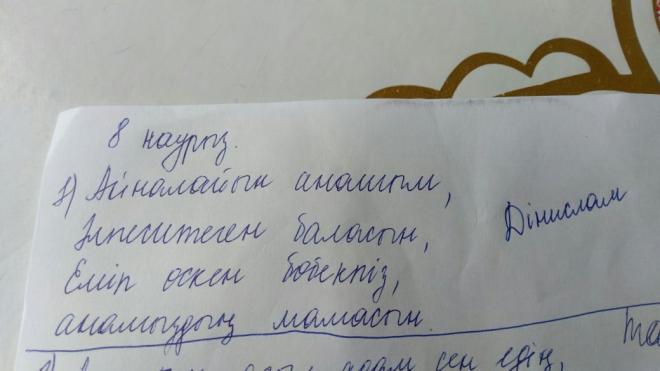 8 наурыз.
1) Айналайын анашым,
Әлпештеген баласын,
Еміп өскен бөбекпіз,
анамыздың мамасын.
Дінислам
адам сен едің,